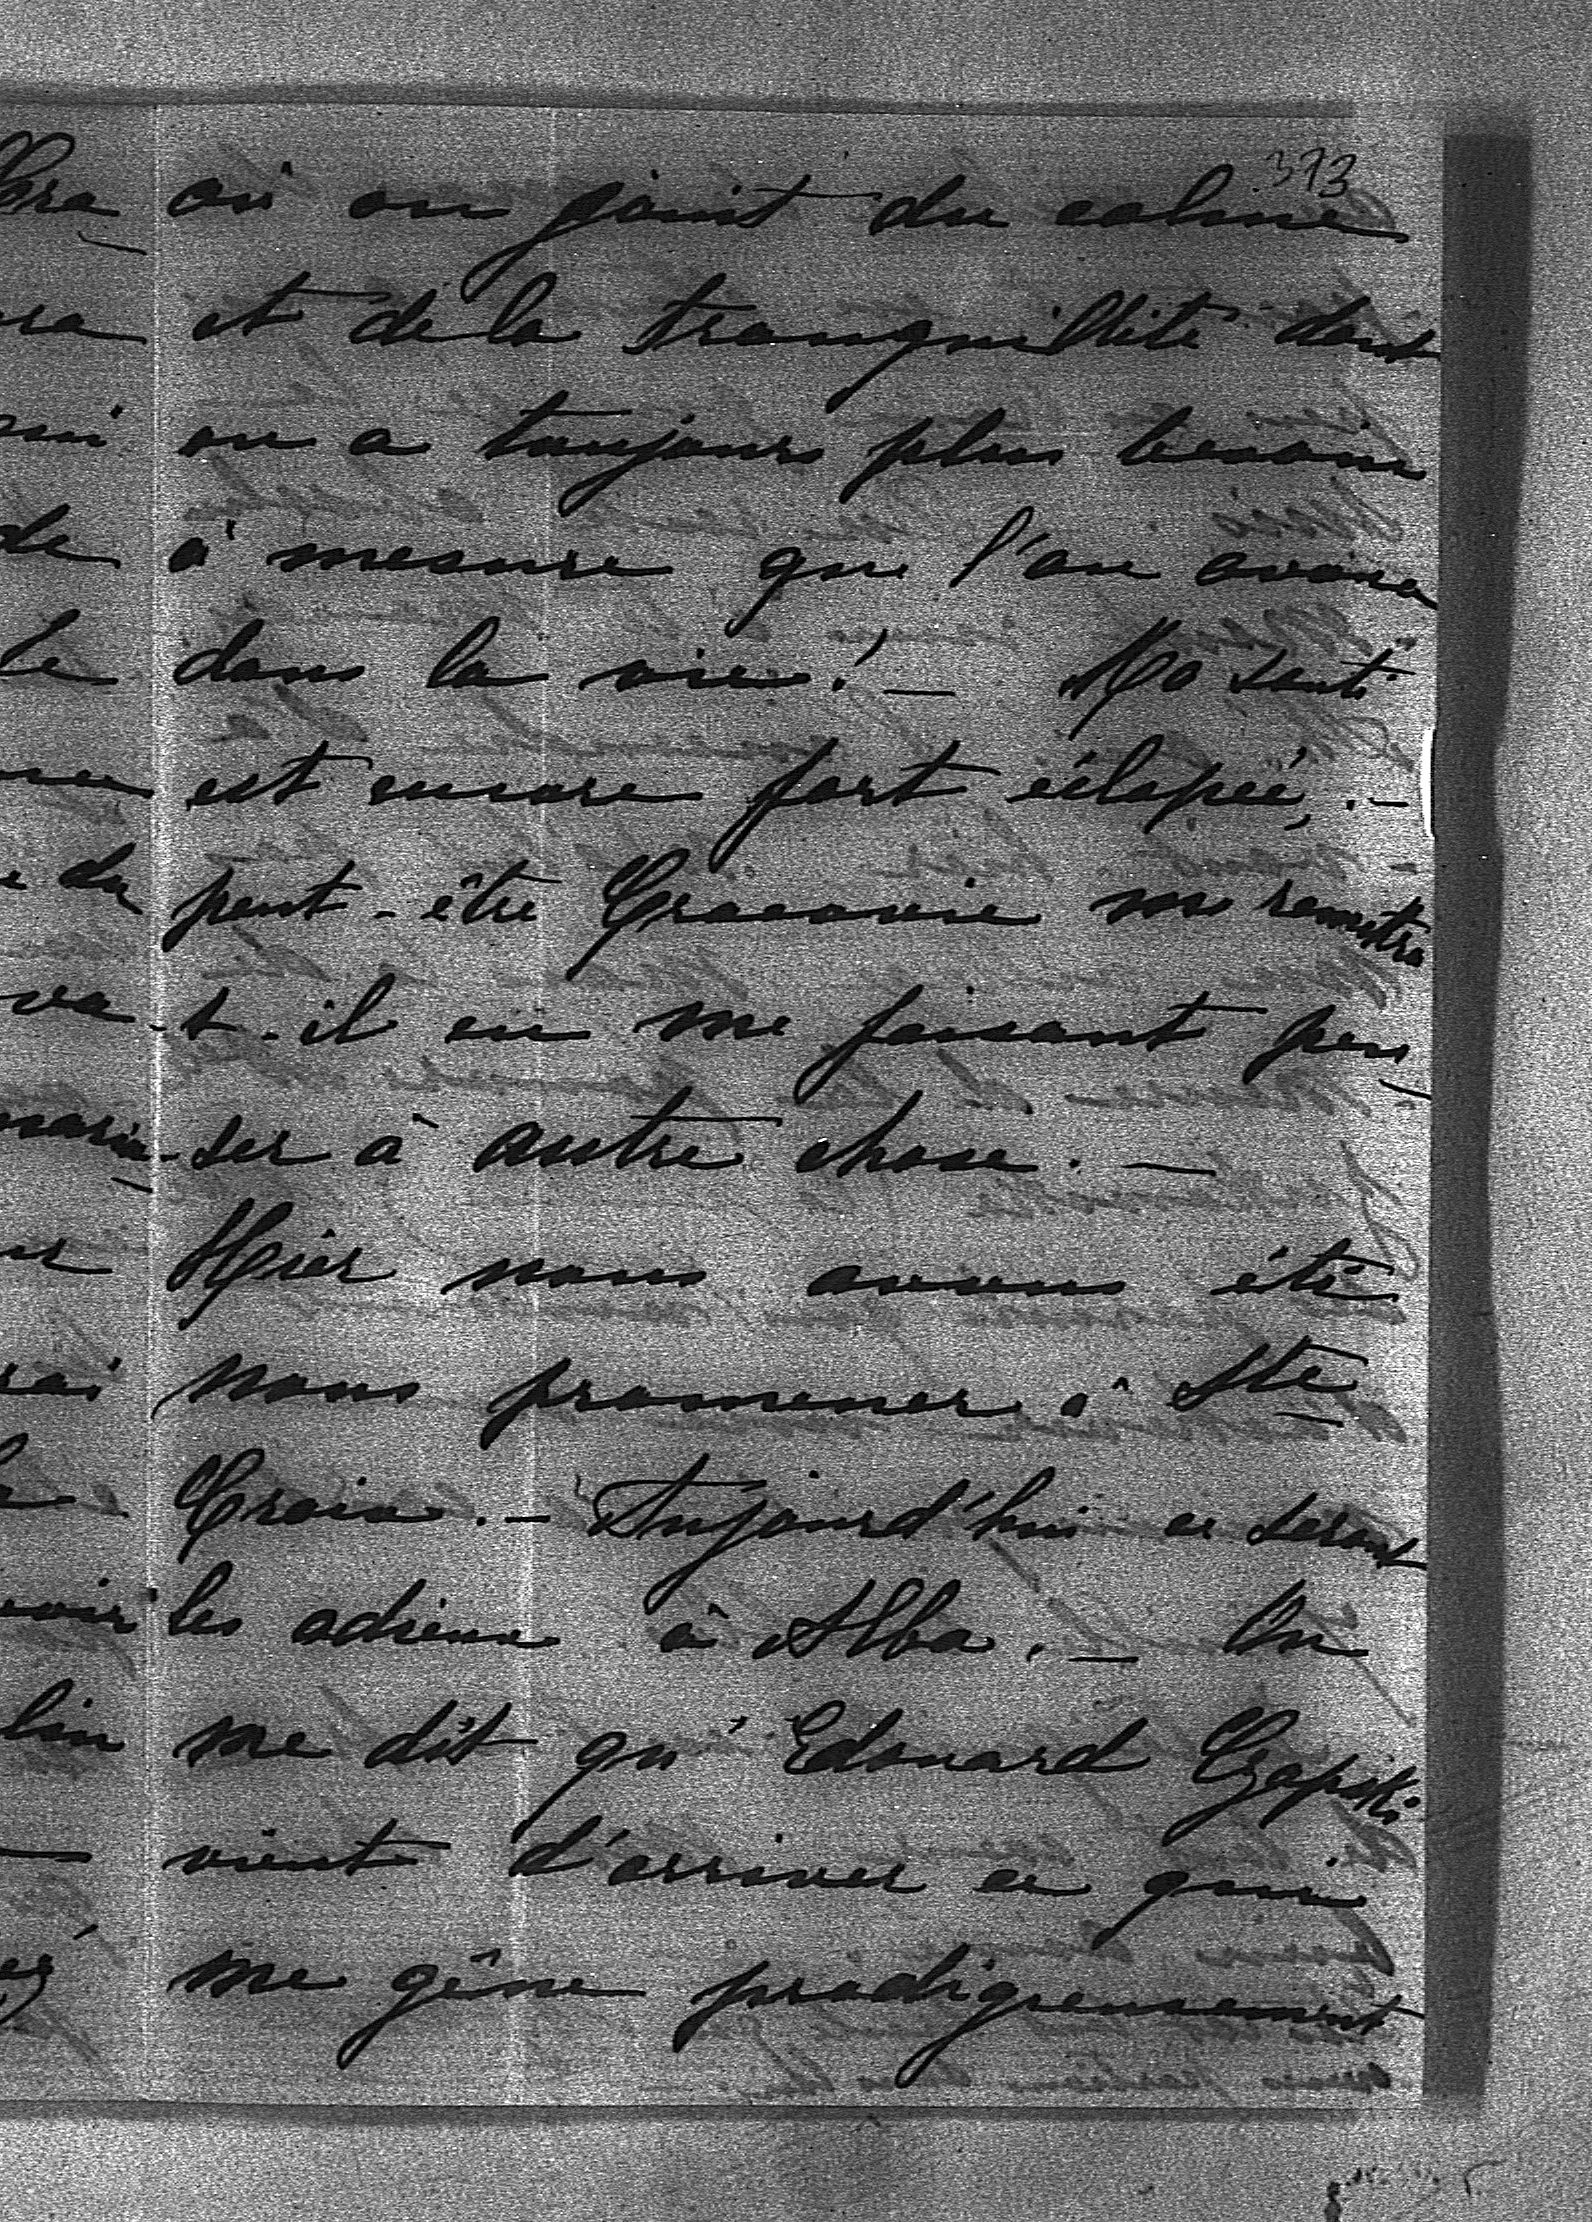 373
où on jouit du calme
et de la tranquillité dont
on a toujours plus besoin
à mesure que l'on avance
dans la vie! — Ma santé
est encore fort éclopée, —
peut-être Cracovie me remettra
-t-il en me faisant pen-
ser à autre chose. —
Hier nous avons été
nous promener à Ste
Croix. — Aujourd'hui ce seront
les adieux à Alba. — On
me dit qu'Edouard Czapski
vient d'arriver ce qui
me gêne prodigieusement